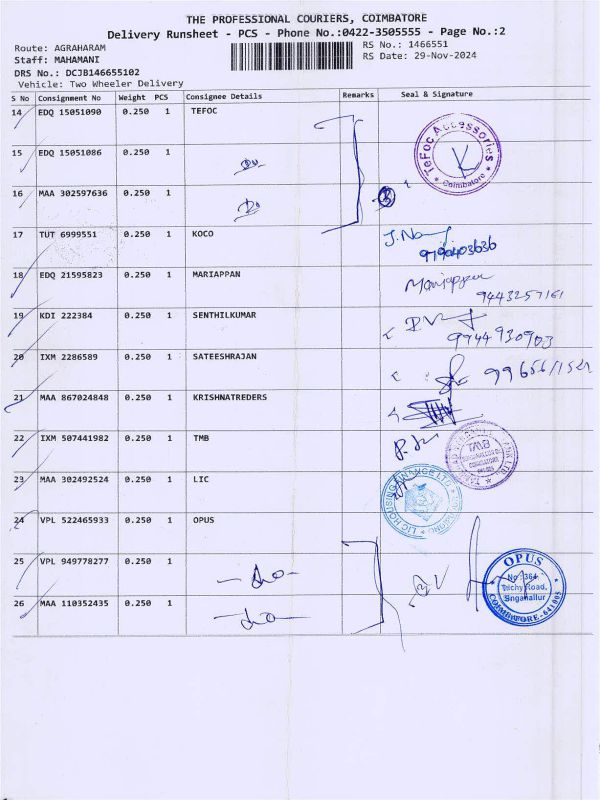 THE PROFESSIONAL COURIERS, COIMBATORE
Delivery Runsheet - PCS - Phone No.:0422-3505555 - Page No.:2
Route: AGRAHARAM
RS No.: 1466551
Staff: MAHAMANI
RS Date: 29-Nov-2024
DRS No.: DCJB146655102
Vehicle: Two Wheeler Delivery
S No Consignment No Weight PCS Consignee Details Remarks Seal & Signature
14 EDQ 15051090 0.250 1 TEFOC
TeFoc Accessories
* Coimbatore *
15 EDQ 15051086 0.250 1
Do
16 MAA 302597636 0.250 1
Do
17 TUT 6999551 0.250 1 KOCO
18 EDQ 21595823 0.250 1 MARIAPPAN
Mariappan
9443257161
19 KDI 222384 0.250 1 SENTHILKUMAR
9944930903
20 IXM 2286589 0.250 1 SATEESHRAJAN
21 MAA 867024848 0.250 1 KRISHNATREDERS
22 IXM 507441982 0.250 1 TMB
TMB
23 MAA 302492524 0.250 1 LIC
LIC HOUSING FINANCE LTD
24 VPL 522465933 0.250 1 OPUS
25 VPL 949778277 0.250 1
do
OPUS
No. 364
Trichy Road,
Singanallur
COIMBATORE-641005
26 MAA 110352435 0.250 1
do